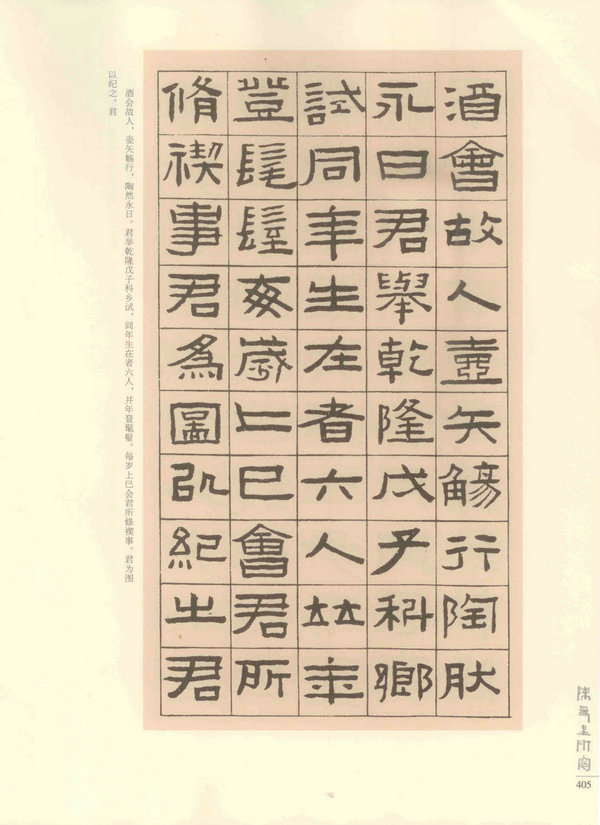 酒會故人壺矢觴行陶肰
永日君舉乾隆戊子科鄉
試同年生在者六人竝年
登髦䰖每歲上巳會君所
脩禊事君為圖㠯紀之君
酒会故人，壶矢觞行，陶然永日。君举乾隆戊子科乡试，同年生在者六人，并年登髦䰖。每岁上巳会君所修禊事。君为图
以纪之。君
405